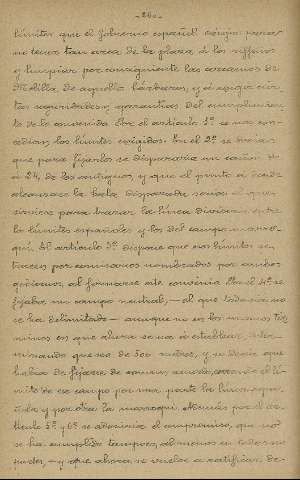 -26-
límites que el Gobierno español exigía para
no tener tan cerca de la plaza á los riffeños
y limpiar por consiguiente las cercanías de
Melilla de aquellos bárbaros, y á exigir cier-
tas seguridades y garantías del cumplimien-
to de lo convenido. Por el artículo 1º se nos con-
cedían los límites exigidos. En el 2º se decía
que para fijarlos se dispararía un cañón de
á 24, de los antiguos, y que el punto á donde
alcanzare la bala disparada sería el que
sirviese para trazar la línea divisoria entre
los límites españoles y los del campo marro-
quí. El artículo 3º dispone que esos límites se
tracen por comisarios nombrados por ambos
gobiernos, al firmarse este convenio. Por el 4º se
fijaba un campo neutral, — el que todavía no
se ha delimitado — aunque no en los mismos tér-
minos en que ahora se va á establecer, deter-
minando que sea de 500 metros, y se decía que
había de fijarse de común acuerdo, siendo el lí-
mite de ese campo por una parte la línea espa-
ñola y por otra la marroquí. Además por el ar-
tículo 5º y 6º se adquiría el compromiso, que no
se ha cumplido tampoco, al menos en todas sus
partes, — y que ahora se vuelve á ratificar de-